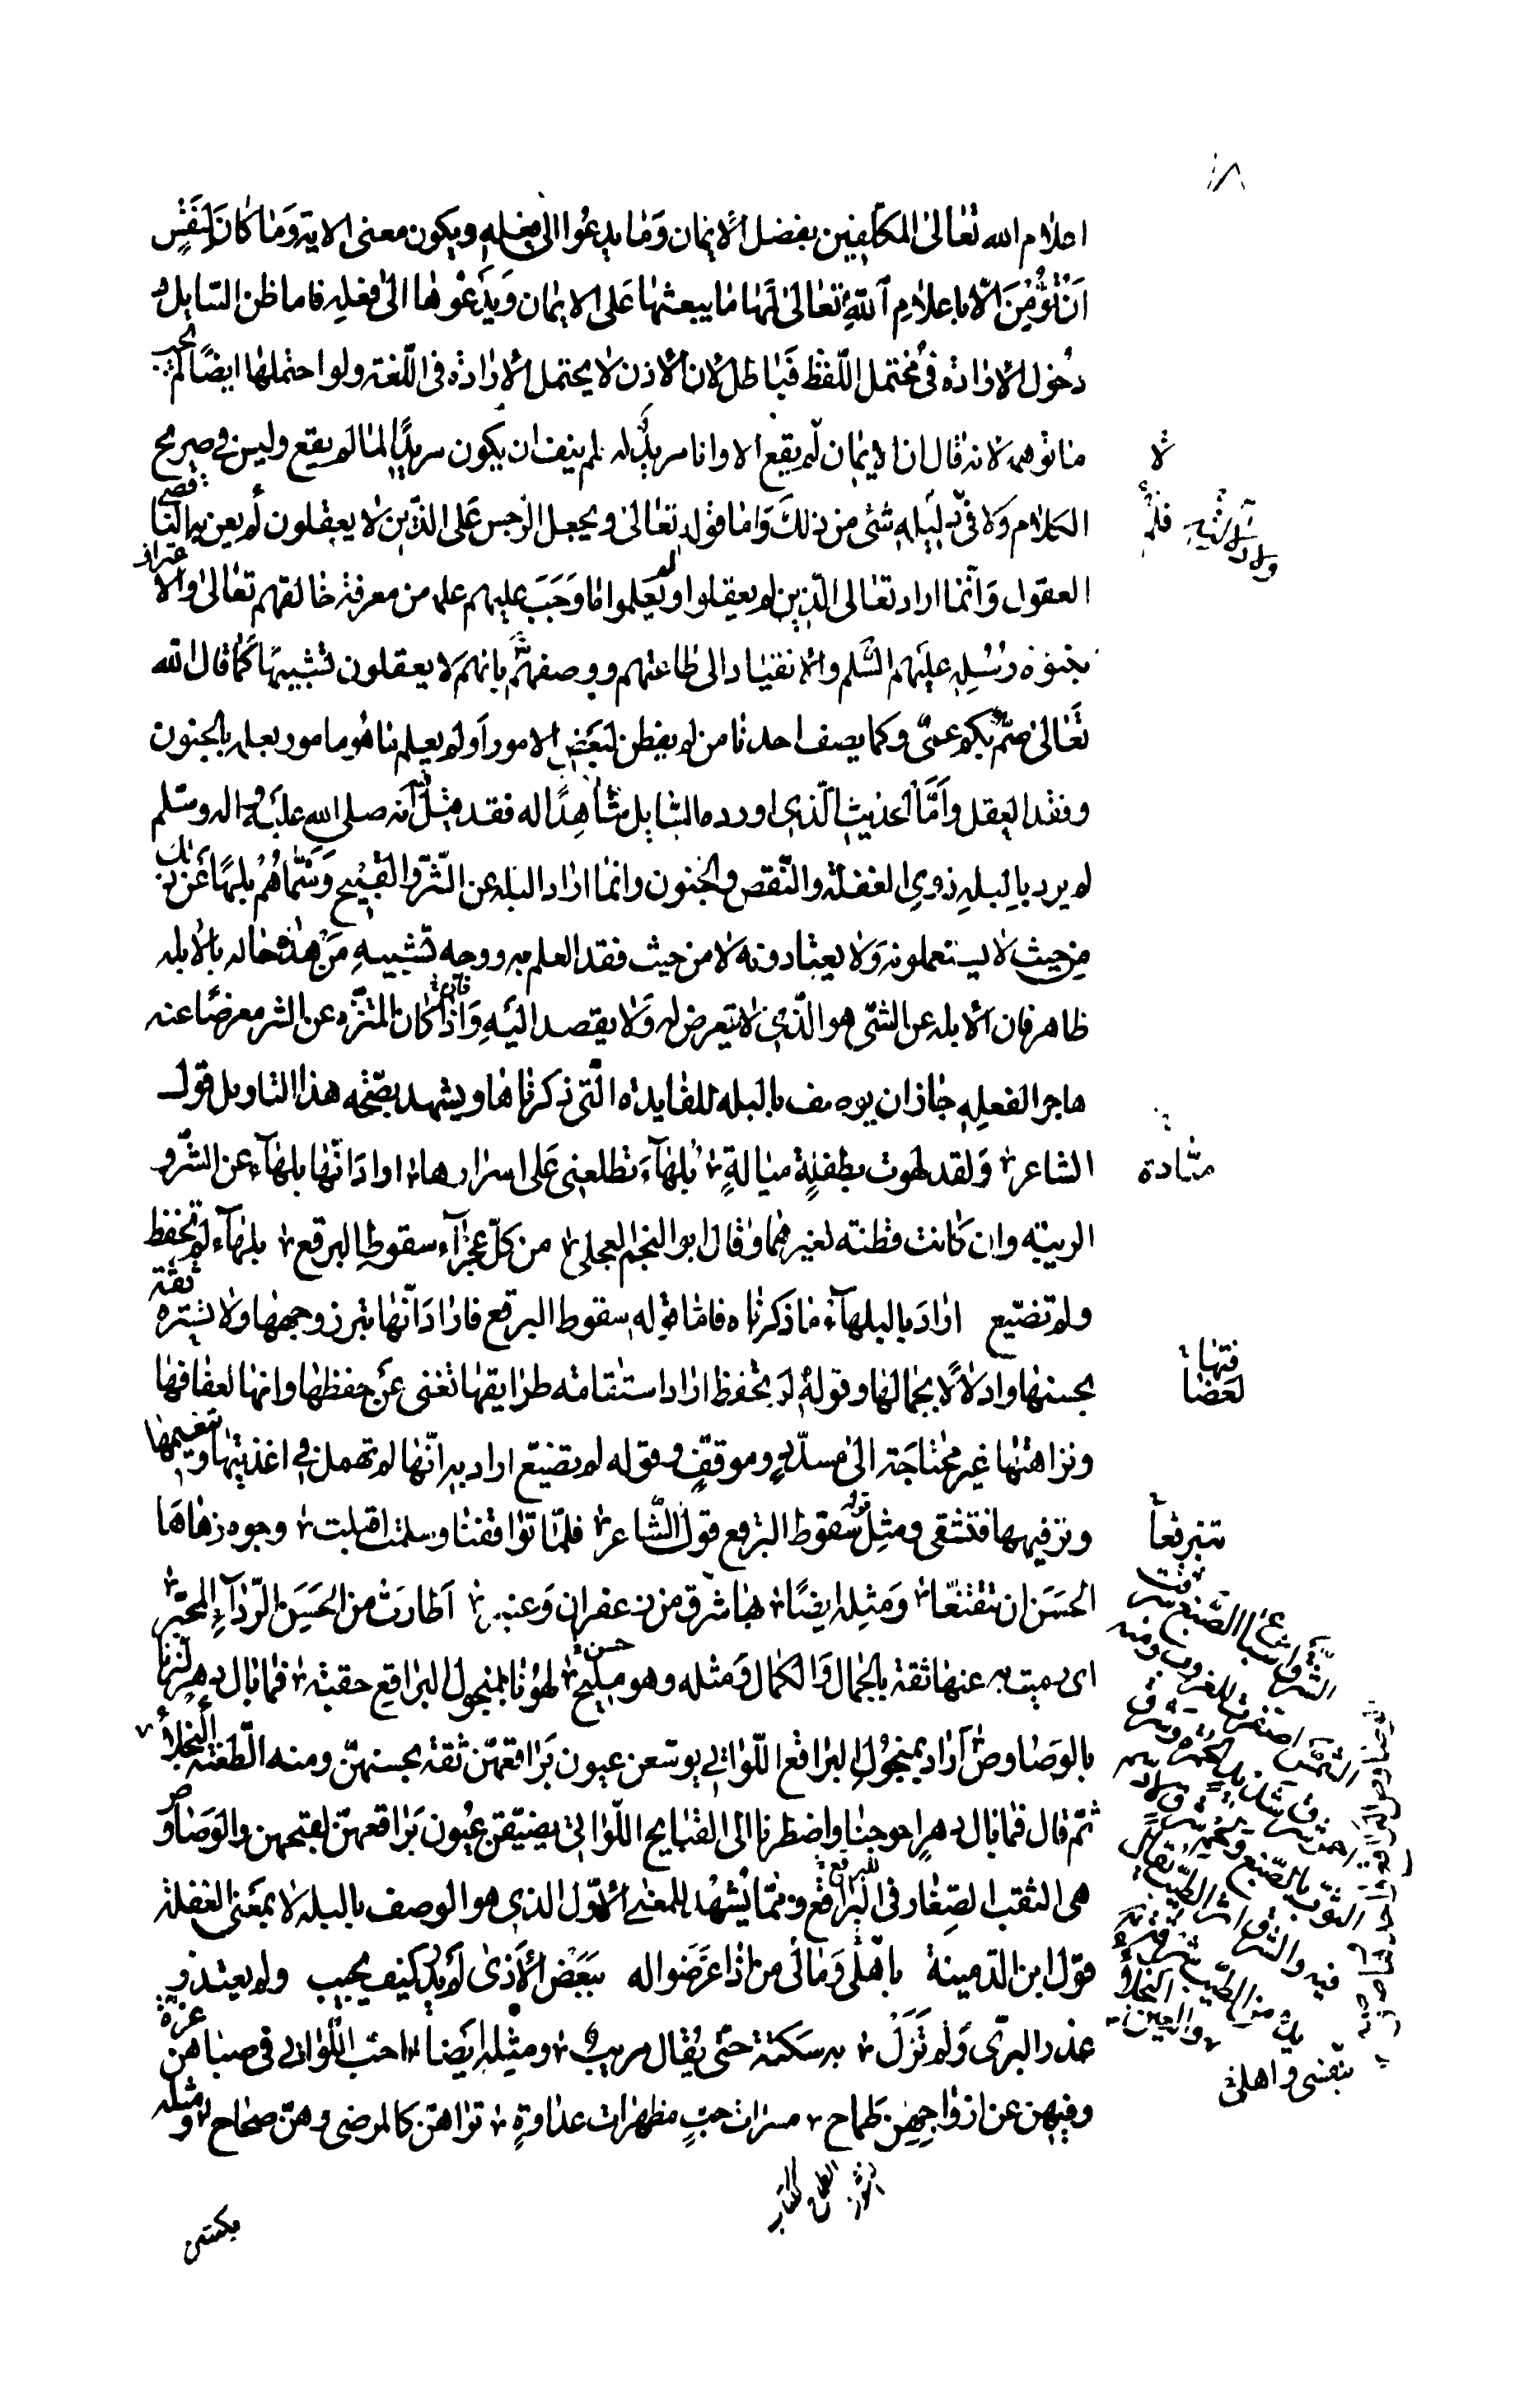 ١٨
اعلام الله تعالى المكلفين بفضل الايمان وما يدعوا الى فعله ويكون معنى الاية وما كان لنفس
ان تؤمن الا باعلام الله تعالى لها ما يبعثها على الايمان ويدعوها الى فعله فاما ظن السايل
دخول الارادة فى محتمل اللفظ فباطل لان الاذن لا يحتمل الارادة فى اللغة ولو احتملها ايضا لم يجب
ما توهمه لانه قال ان الايمان لم يقع الا وانا مريد له لم ينف ان يكون مريدا لما لم يقع وليس فى صريح
الكلام ولا فى دليله شئ من ذلك واما قوله تعالى ويجعل الرجس على الذين لا يعقلون لم يعن به الناقصى
العقول وانما اراد تعالى الذين لم يعقلوا ولم يعلموا ما وجب عليهم علمه من معرفة خالقهم تعالى والاعتراف
بنبوة رسله عليهم السلم والانقياد الى طاعتهم ووصفهم بانهم لا يعقلون تشبيها كما قال الله
تعالى صم بكم عمى وكما يصف احدنا من لم يفطن لبعض الامور او لم يعلم ما هو مامور بعلمه بالجنون
وفقد العقل واما الحديث الذى اورده السايل شاهدا له فقد قيل فيه انه صلى الله عليه واله وسلم
لم يرد بالبله ذوى الغفلة والنقص والجنون وانما اراد البله عن الشر والقبيح وسماهم بلها عن ذلك
من حيث لا يستعملونه ولا يعتادونه لا من حيث فقد العلم به ووجه تشبيه من هذه حاله بالابله
ظاهر فان الابله عن الشئ هو الذى لا يتعرض له ولا يقصد اليه فاذا كان المتنزه عن الشر معرضا عنه
هاجرا لفعله جاز ان يوصف بالبله للفايدة التى ذكرناها ويشهد بصحة هذا التاويل قول
الشاعر ولقد لهوت بطفلة ميالة بلهآء تطلعنى على اسرارها اراد انها بلهآء عن الشر و
الريبة وان كانت فطنة لغيرهما وقال ابو النجم العجلى من كل عجزآء سقوط البرقع بلهآء لم تحفظ
ولم تضيع اراد بالبلهآء ما ذكرناه فاما قوله سقوط البرقع فاراد انها تبرز وجهها ولا تستره ثقة
بحسنها وادلالا بجمالها وقوله لم تحفظ اراد استقامة طرايقها تغنى عن حفظها وانها لعفافها
ونزاهتها غير محتاجة الى مسدد وموقف وقوله لم تضيع اراد به انها لم تهمل فى اغذيتها وتنعيمها
وترفيهها فتشقى ومثل قوله سقوط البرقع قول الشاعر فلما تواقفنا وسلمت اقبلت وجوه زهاها
الحسن ان تتقنعا ومثله ايضا بها شرق من زعفران وعنبر اطارت من الحسن الردآء المحبر
اى رمت به عنها ثقة بالجمال والكمال ومثله وهو مليح لهونا بمنجول البراقع حقبة فما بال دهر لزنا
بالوصاوص اراد بمنجول البراقع اللواتى يوسعن عيون براقعهن ثقة بحسنهن ومنه الطعنة النجلاء
ثم قال فما بال دهر احوجنا واضطرنا الى القبايح اللواتى يضيقن عيون براقعهن لقبحهن والوصاوص
هى الثقب الصغار فى البراقع ومما يشهد للمعنى الاول الذى هو الوصف بالبله لا بمعنى الغفلة
قول ابن الدمينة باهلى ومالى من اذا عرضوا له ببعض الاذى لم يدر كيف يجيب ولم يعتذر
عذر البرى ولم تزل به سكتة حتى يقال مريب ومثله ايضا احب اللواتى فى صباهن غرة
وفيهن عن ازواجهن طماح مسرات حب مظهرات عداوة تراهن كالمرضى وهن صحاح ومثله
ميادة
تتبرقعا
بنفسى واهلى